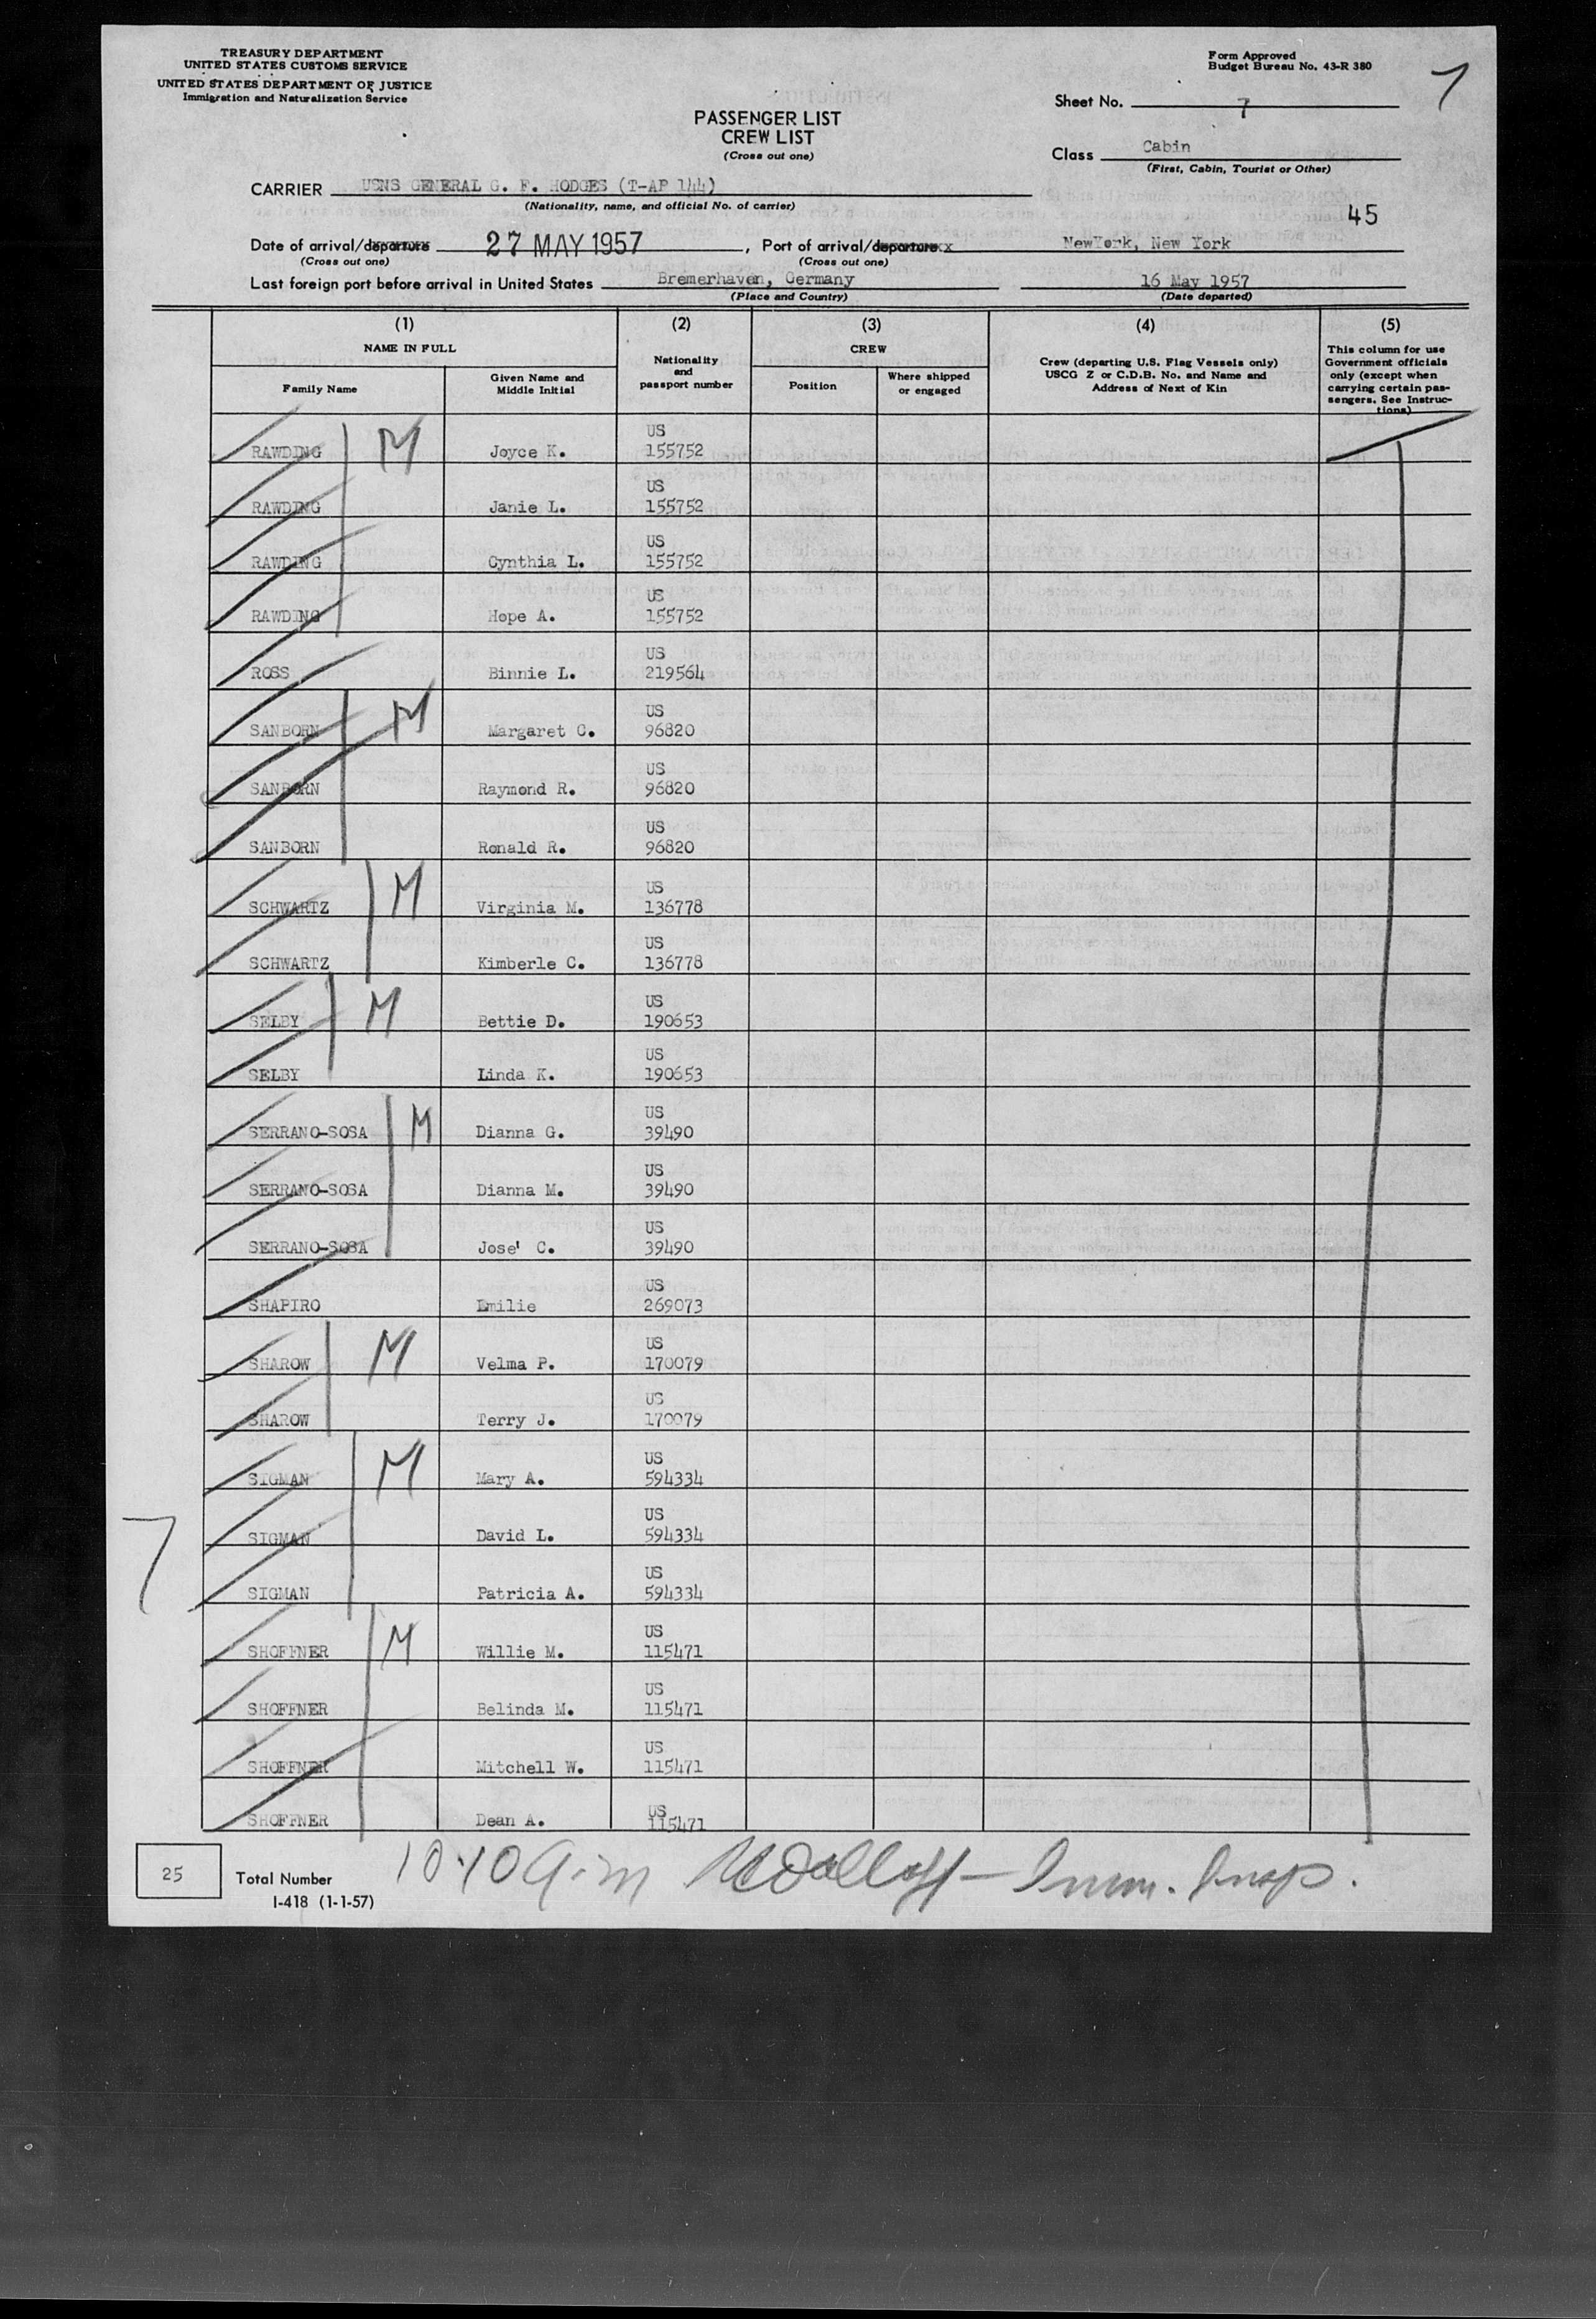 TREASURY DEPARTMENT
UNITED STATES CUSTOMS SERVICE
UNITED STATES DEPARTMENT OF JUSTICE
Immigration and Naturalization Service
Form Approved
Budget Bureau No. 43-R 380
7
Sheet No. 7
PASSENGER LIST
CREW LIST
(Cross out one)
Class Cabin
(First, Cabin, Tourist or Other)
CARRIER USNS GENERAL G. F. HODGES (T-AP 144)
(Nationality, name, and official No. of carrier)
45
Date of arrival/departure 27 MAY 1957, Port of arrival/departure NewYork, New York
(Cross out one) (Cross out one)
Last foreign port before arrival in United States Bremerhaven, Germany 16 May 1957
(Place and Country) (Date departed)
(1) (2) (3) (4) (5)
NAME IN FULL Nationality and passport number CREW Crew (departing U.S. Flag Vessels only) USCG Z or C.D.B. No. and Name and Address of Next of Kin This column for use Government officials only (except when carrying certain passengers. See Instructions)
Family Name Given Name and Middle Initial Position Where shipped or engaged
RAWDING M Joyce K. US 155752
RAWDING Janie L. US 155752
RAWDING Cynthia L. US 155752
RAWDING Hope A. US 155752
ROSS Binnie L. US 219564
SANBORN M Margaret C. US 96820
SANBORN Raymond R. US 96820
SANBORN Ronald R. US 96820
SCHWARTZ M Virginia M. US 136778
SCHWARTZ Kimberle C. US 136778
SELBY M Bettie D. US 190653
SELBY Linda K. US 190653
SERRANO-SOSA M Dianna G. US 39490
SERRANO-SOSA Dianna M. US 39490
SERRANO-SOSA Jose' C. US 39490
SHAPIRO Emilie US 269073
SHAROW M Velma P. US 170079
SHAROW Terry J. US 170079
SIGMAN M Mary A. US 594334
7
SIGMAN David L. US 594334
SIGMAN Patricia A. US 594334
SHOFFNER M Willie M. US 115471
SHOFFNER Belinda M. US 115471
SHOFFNER Mitchell W. US 115471
SHOFFNER Dean A. US 115471
25 Total Number
10:10 a.m Imm. Insp.
I-418 (1-1-57)